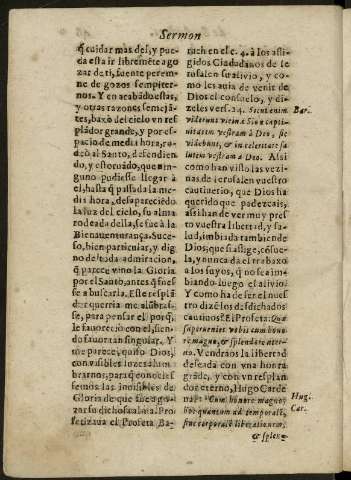 Sermon
q̃ cuidar mas dels, y pue-
da esta ir libremēte a go
zar de ti, fuente perem-
ne de gozos sempiter-
nos. Y en acabādo estas,
y otras razones semejā-
tes, baxò del cielo vn res
plādor grande, y por es-
pacio de media hora, ro-
deò al Santo, defendien
do, y estoruādo, que nin-
guno pudiesse llegar à
el, hasta q̃ passada la me-
dia hora, desapareciēdo
la luz del cielo, su alma
rodeada della, se fue à la
Bienauenturança. Suce-
so, bien particular, y dig
no de toda admiracion,
q̃ parece vino la Gloria
por el Santo, antes q̃ fues
se a buscarla. Este resplā
der querria me alūbras-
se, para pensar el porq̃,
le fauorecio con el, sien-
do fauor tan singular. Y
me parece, quito Dios,
con visibles luzes alum
brarnos, para q̃ conocies
semos las inuisibles de
Gloria de que fue a go-
zar su dichosa alma. Pro
fetizaua el Profeta Ba-
ruch en el c. 4. à los afli-
gidos Ciudadanos de Ie
rusalen su aliuio, y co-
mo les auia de venir de
Dios el consuelo, y di-
zeles vers. 24. Sicut enim
Bar.
viderunt vicinæ Sion capti-
uitatem vestram à Deo, sic
videbunt, & in celeritate sa
lutem vestram à Deo. Assi
como han visto las vezi-
nas de Ierusalen vuestro
cautiuerio, que Dios ha
querido que padezcais,
assi han de ver muy pres
to vuestra libertad, y sa-
lud, imbiada tambien de
Dios; que si aflige, cōsue-
la, y nunca da el trabaxo
a los suyos, q̃ no sea im-
biando luego el aliuio.
Y como ha de ser el nues
tro dizē los desdichados
cautiuos? El Profeta: Quæ
superueniet vobis cum hono
re magno, & splendore æter-
no. Vendraos la libertad
deseada con vna honra
grāde, y con vn resplan-
dor eterno, Hugo Carde
nal: Cum honore magno;
Hug.
Car.
hoc quantum ad temporalē,
siue corporalē liberationem,
& splen-